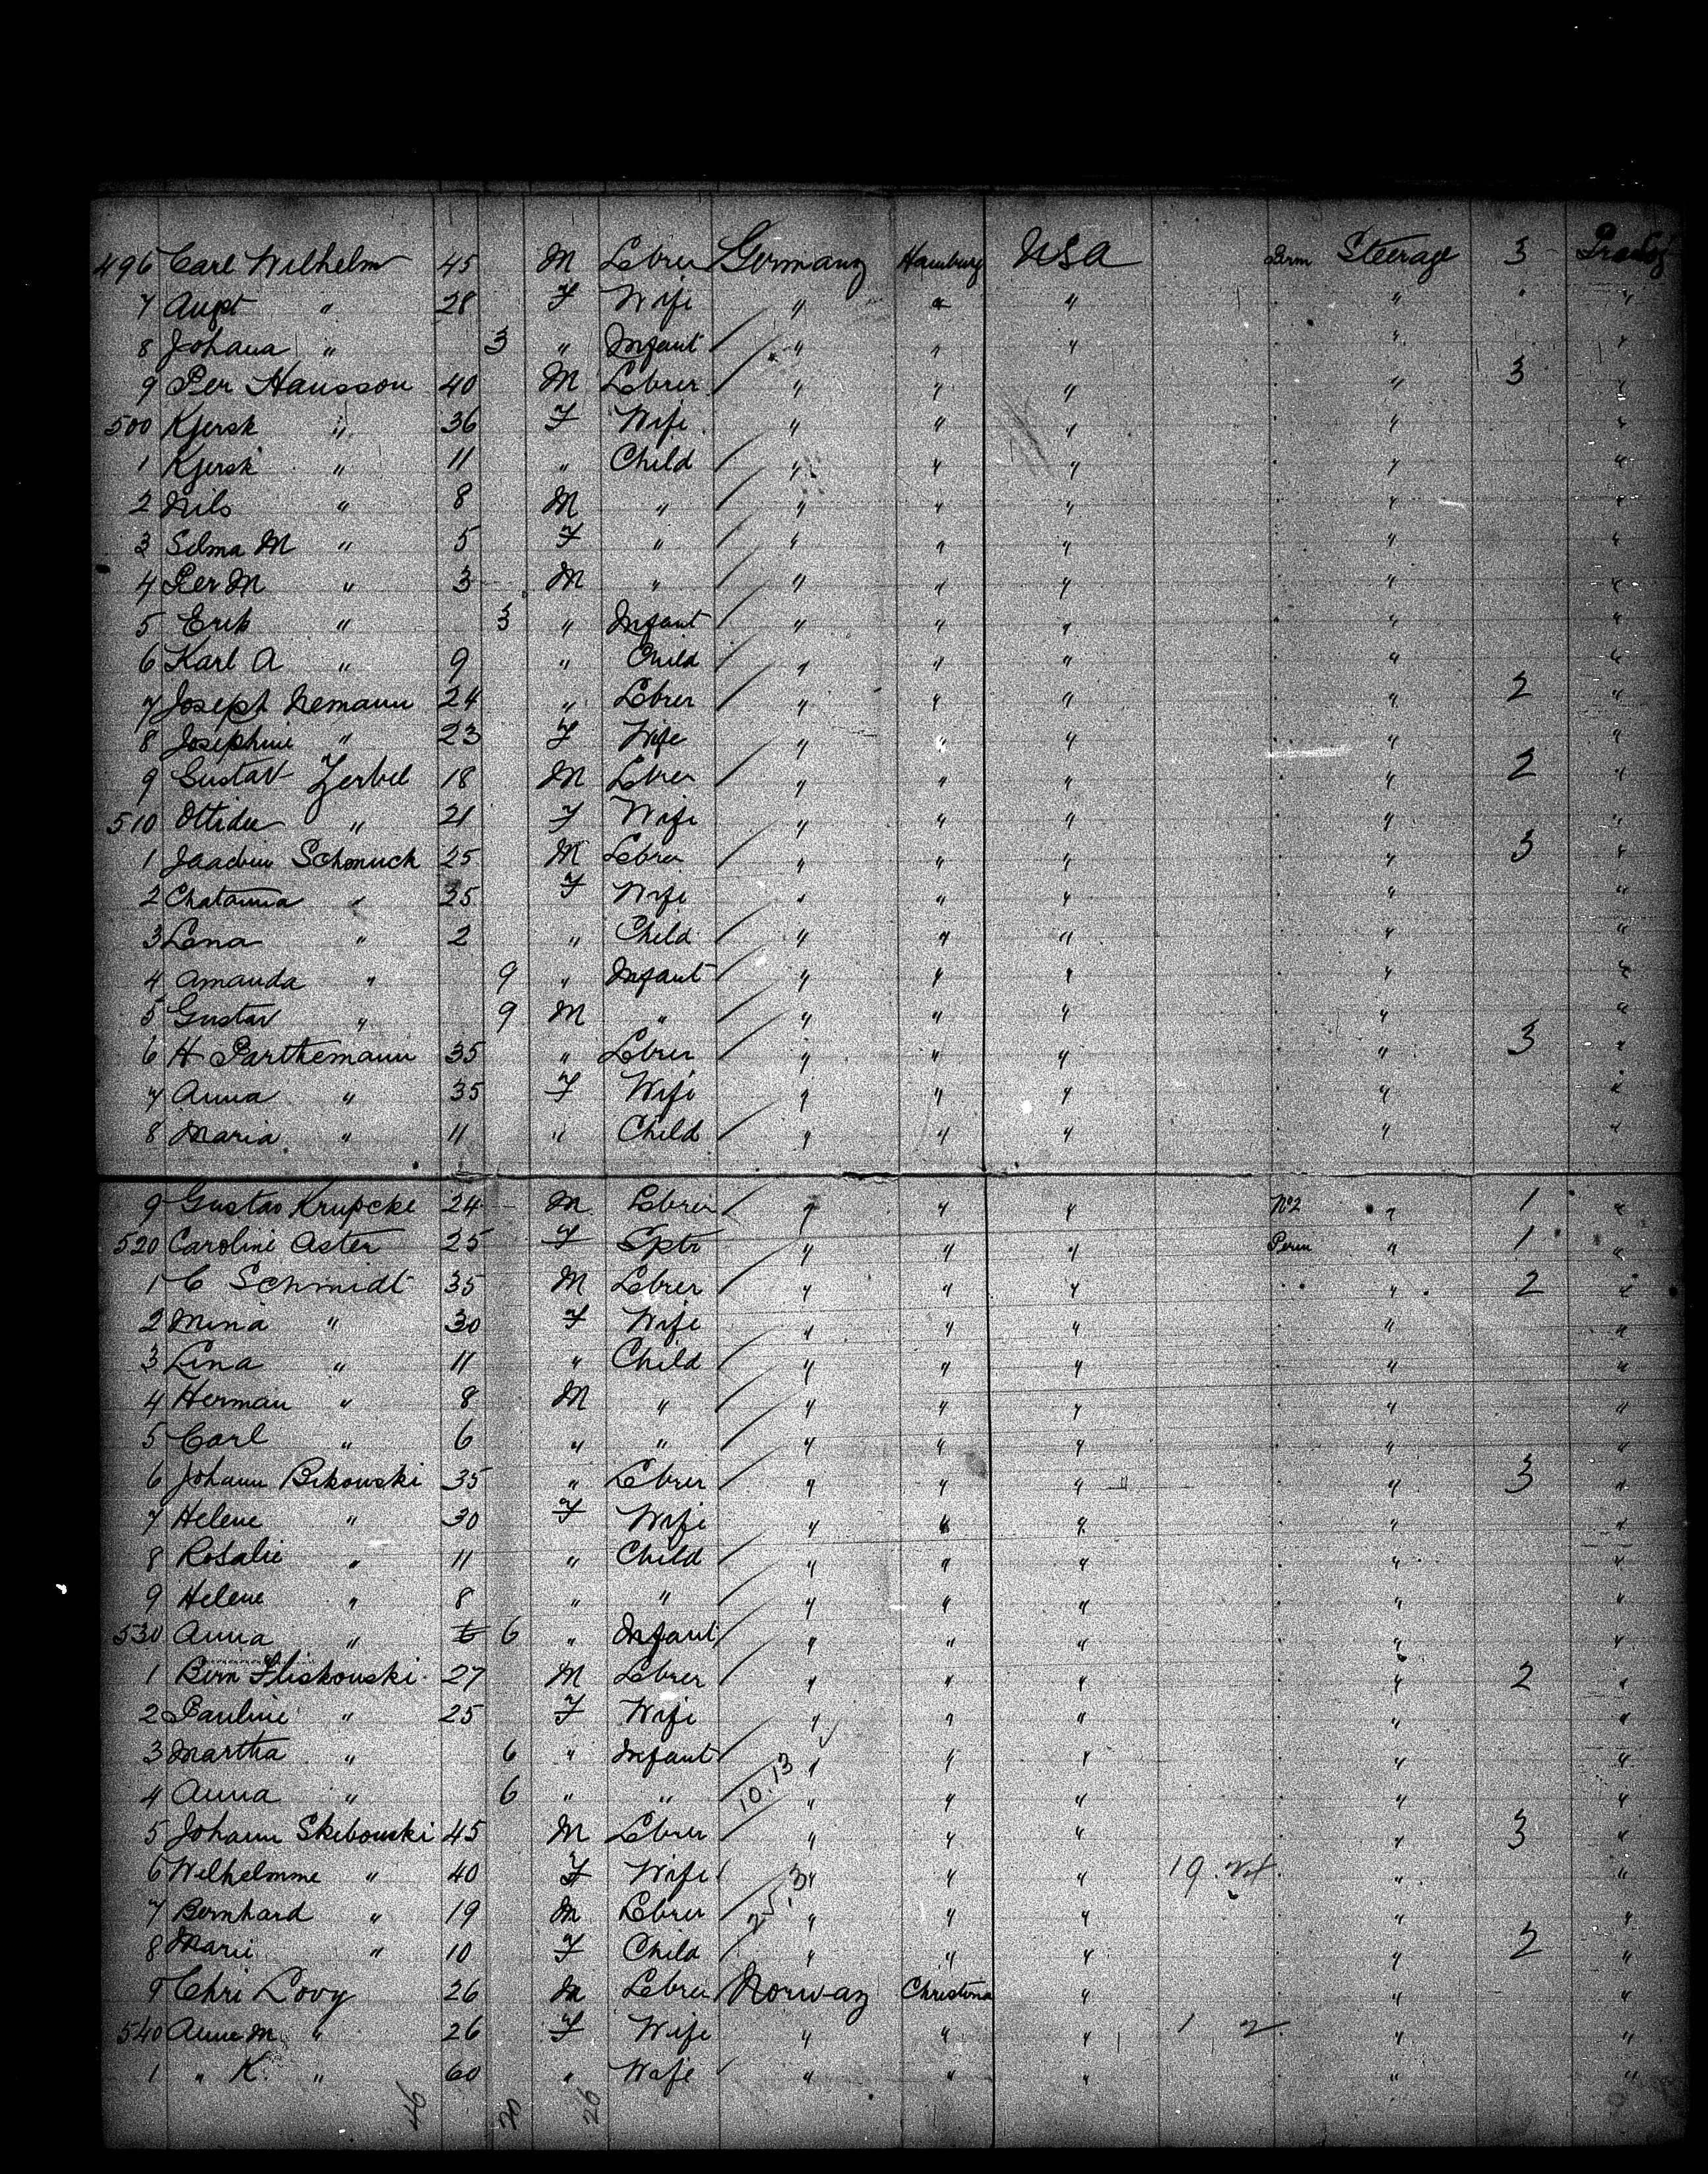 496 Carl Wilhelm 45 M Lebrer Germany Hamburg USA Steerage 3
7 Augt " 28 F Wife " " " " " "
8 Johana " 3 " Infant " " " " "
9 Per Hansson 40 M Lebrer " " " " 3 "
500 Kjersk " 36 F Wife " " " " "
1 Kjersk " 11 " Child " " " " "
2 Nils " 8 M " " " " " "
3 Selma M " 5 F " " " " " "
4 Per M " 3 M " " " " " "
5 Erik " 3 " Infant " " " " "
6 Karl A " 9 " Child " " " " "
7 Joseph Nemann 24 " Lebrer " " " " 2 "
8 Josephine " 23 F Wife " " " " "
9 Gustav Zerbel 18 M Lebrer " " " " 2 "
510 " 21 F Wife " " " " "
1 Schmuck 25 M Lebrer " " " " 3 "
2 " 25 F Wife " " " " "
3 Lena " 2 " Child " " " " "
4 Amanda " 9 " Infant " " " " "
5 Gustav " 9 M " " " " " "
6 H Parthemann 35 " Lebrer " " " " 3 "
7 Anna " 35 F Wife " " " " "
8 Maria " 11 " Child " " " " "
9 Gustav Krupcke 24 M Lebrer " " " No2 " 1 "
520 Caroline Aster 25 F Sptr " " " " 1 "
1 C Schmidt 35 M Lebrer " " " " 2 "
2 Mina " 30 F Wife " " " " "
3 Lina " 11 " Child " " " " "
4 Herman " 8 M " " " " " "
5 Carl " 6 " " " " " " "
6 Johann Bikowski 35 " Lebrer " " " " 3 "
7 Helene " 30 F Wife " " " " "
8 Rosalie " 11 " Child " " " " "
9 Helene " 8 " " " " " " "
530 Anna " 6 6 " Infant " " " " "
1 Bern Fliskowski 27 M Lebrer " " " " 2 "
2 Pauline " 25 F Wife " " " " "
3 Martha " 6 " Infant " " " " "
4 Anna " 6 " " 10.13 " " " " "
5 Johann Skibowski 45 M Lebrer " " " " 3 "
6 Wilhelmine " 40 F Wife " " " 19 " "
7 Bernhard " 19 M Lebrer " " " " "
8 Marie " 10 F Child " " " " 2 "
9 Chri Lovy 26 M Lebrer Norway Christina " " "
540 Anne M " 26 F Wife " " " 1 2 " "
1 " K " 60 " Wife " " " " "
46 20 26